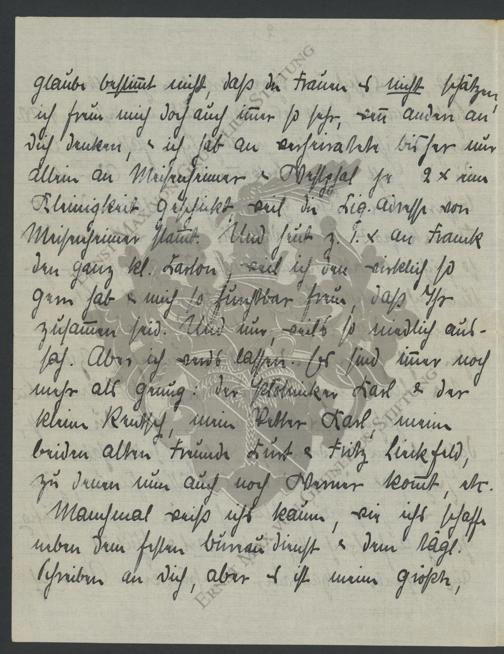 glaube bestimmt nicht, daß die Frauen es nicht schätzen,
ich freue mich doch auch immer so sehr, wenn andere an
Dich denken, & ich hab an verheiratete bisher nur
allein an Meisenheimer & Westphal je 2 x eine
Kleinigkeit geschickt weil die Zig. adresse von
Meisenheimer stammt. Und heut z. 1. x an Frank
den ganz kl. Karton, weil ich den wirklich so
gern hab & mich so furchtbar freue daß Ihr
zusammen seid. Und nur, weils so niedlich aus-
sah. Aber ich werds lassen. Es sind immer noch
mehr als genug: der Karl & der
kleine Rentsch, mein Vetter Karl, meine
beiden alten Freunde Kurt & Fritz Lieckfeld,
zu denen nun auch noch Werner kommt, etc.
Manchmal weiß ichs kaum, wie ichs schaffe
neben dem festen bureaudienst & dem tägl.
Schreiben an Dich, aber es ist meine größte,
ERNST MAX VON STIFTUNG
ERNST MAX VON STIFTUNG